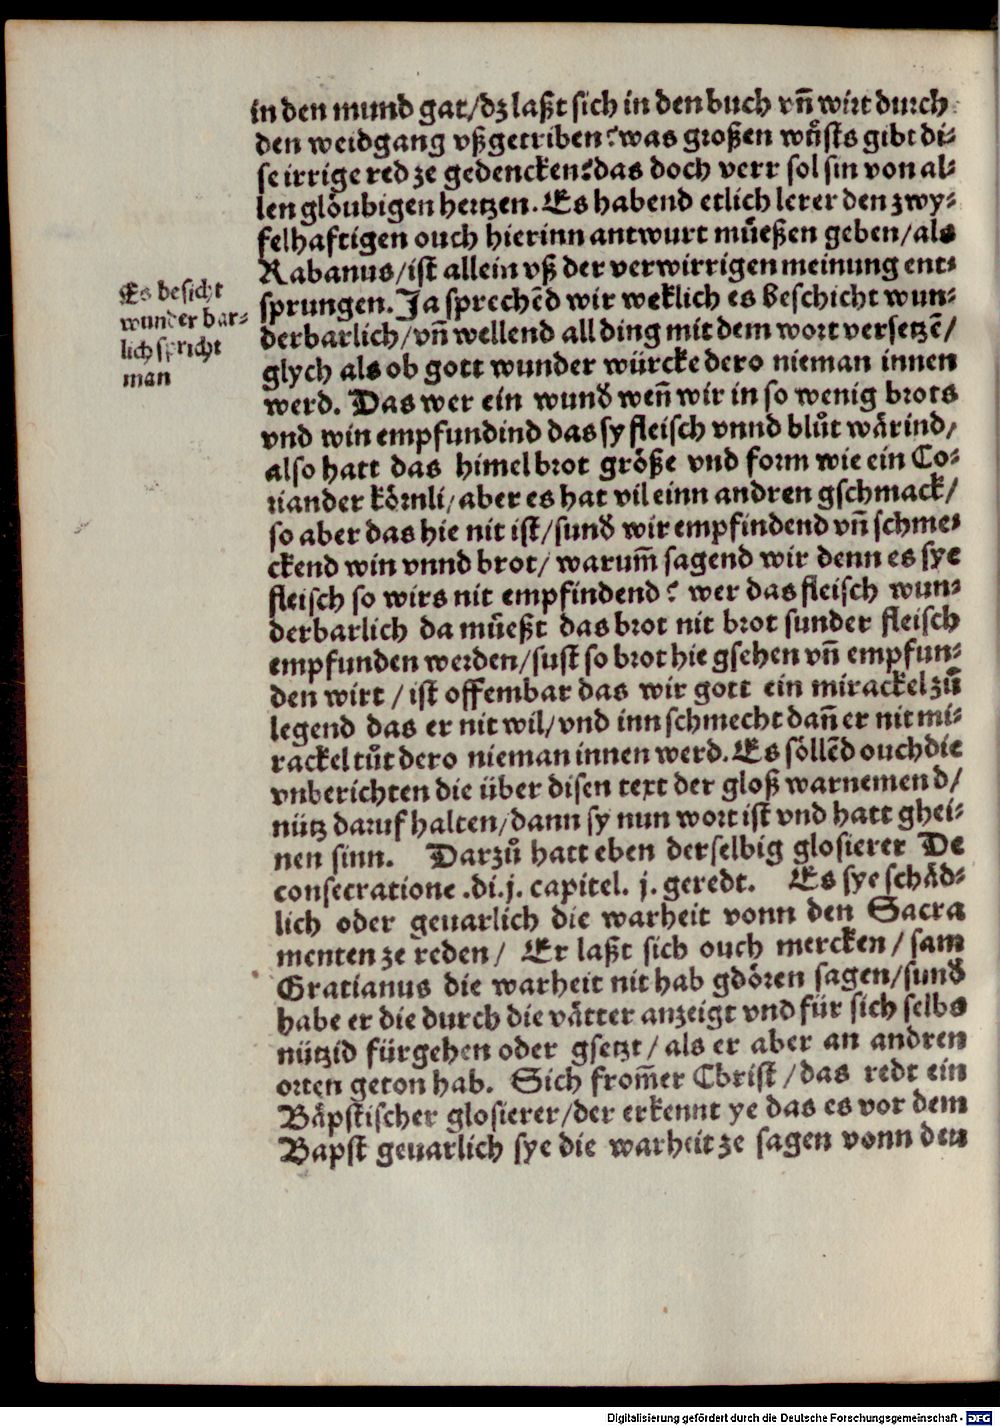 in den mund gat/dz laßt sich in den buch vñ wirt durch
den weidgang vßgetriben? was großen wůsts gibt di-
se irrige red ze gedencken? das doch verr sol sin von al-
len glöubigen hertzen. Es habend etlich lerer den zwy-
felhaftigen ouch hierinn antwurt müeßen geben/als
Rabanus/ist allein vß der verwirrigen meinung ent-
sprungen. Ja sprechẽd wir weklich es beschicht wun-
derbarlich/vñ wellend all ding mit dem wort versetzẽ/
glych als ob gott wunder würcke dero nieman innen
werd. Das wer ein wunđ weñ wir in so wenig brots
vnd win empfundind das sy fleisch vnnd blůt wärind/
also hatt das himelbrot größe vnd form wie ein Co-
riander körnli/aber es hat vil einn andren gschmack/
so aber das hie nit ist/sunđ wir empfindend vñ schme-
ckend win vnnd brot/warum̃ sagend wir denn es sye
fleisch so wirs nit empfindend? wer das fleisch wun-
derbarlich da müeßt das brot nit brot sunder fleisch
empfunden werden/sust so brot hie gsehen vñ empfun-
den wirt/ist offembar das wir gott ein mirackel zů
legend das er nit wil/vnd inn schmecht dañ er nit mi-
rackel tůt dero nieman innen werd. Es söllẽd ouch die
vnberichten die über disen text der gloß warnemend/
nütz daruf halten/dann sy nun wort ist vnd hatt ghei-
nen sinn. Darzů hatt eben derselbig glosierer De
consecratione .di.j. capitel. j. geredt. Es sye schäd-
lich oder geuarlich die warheit vonn den Sacra
menten ze reden/ Er laßt sich ouch mercken/sam
Gratianus die warheit nit hab gdören sagen/sunđ
habe er die durch die vätter anzeigt vnd für sich selbs
nützid fürgehen oder gsetzt/als er aber an andren
orten geton hab. Sich from̃er Christ/das redt ein
Bäpstischer glosierer/der erkennt ye das es vor dem
Bapst geuarlich sye die warheit ze sagen vonn den
Es besicht
wunder bar-
lich spricht
man
Digitalisierung gefördert durch die Deutsche Forschungsgemeinschaft - DFG